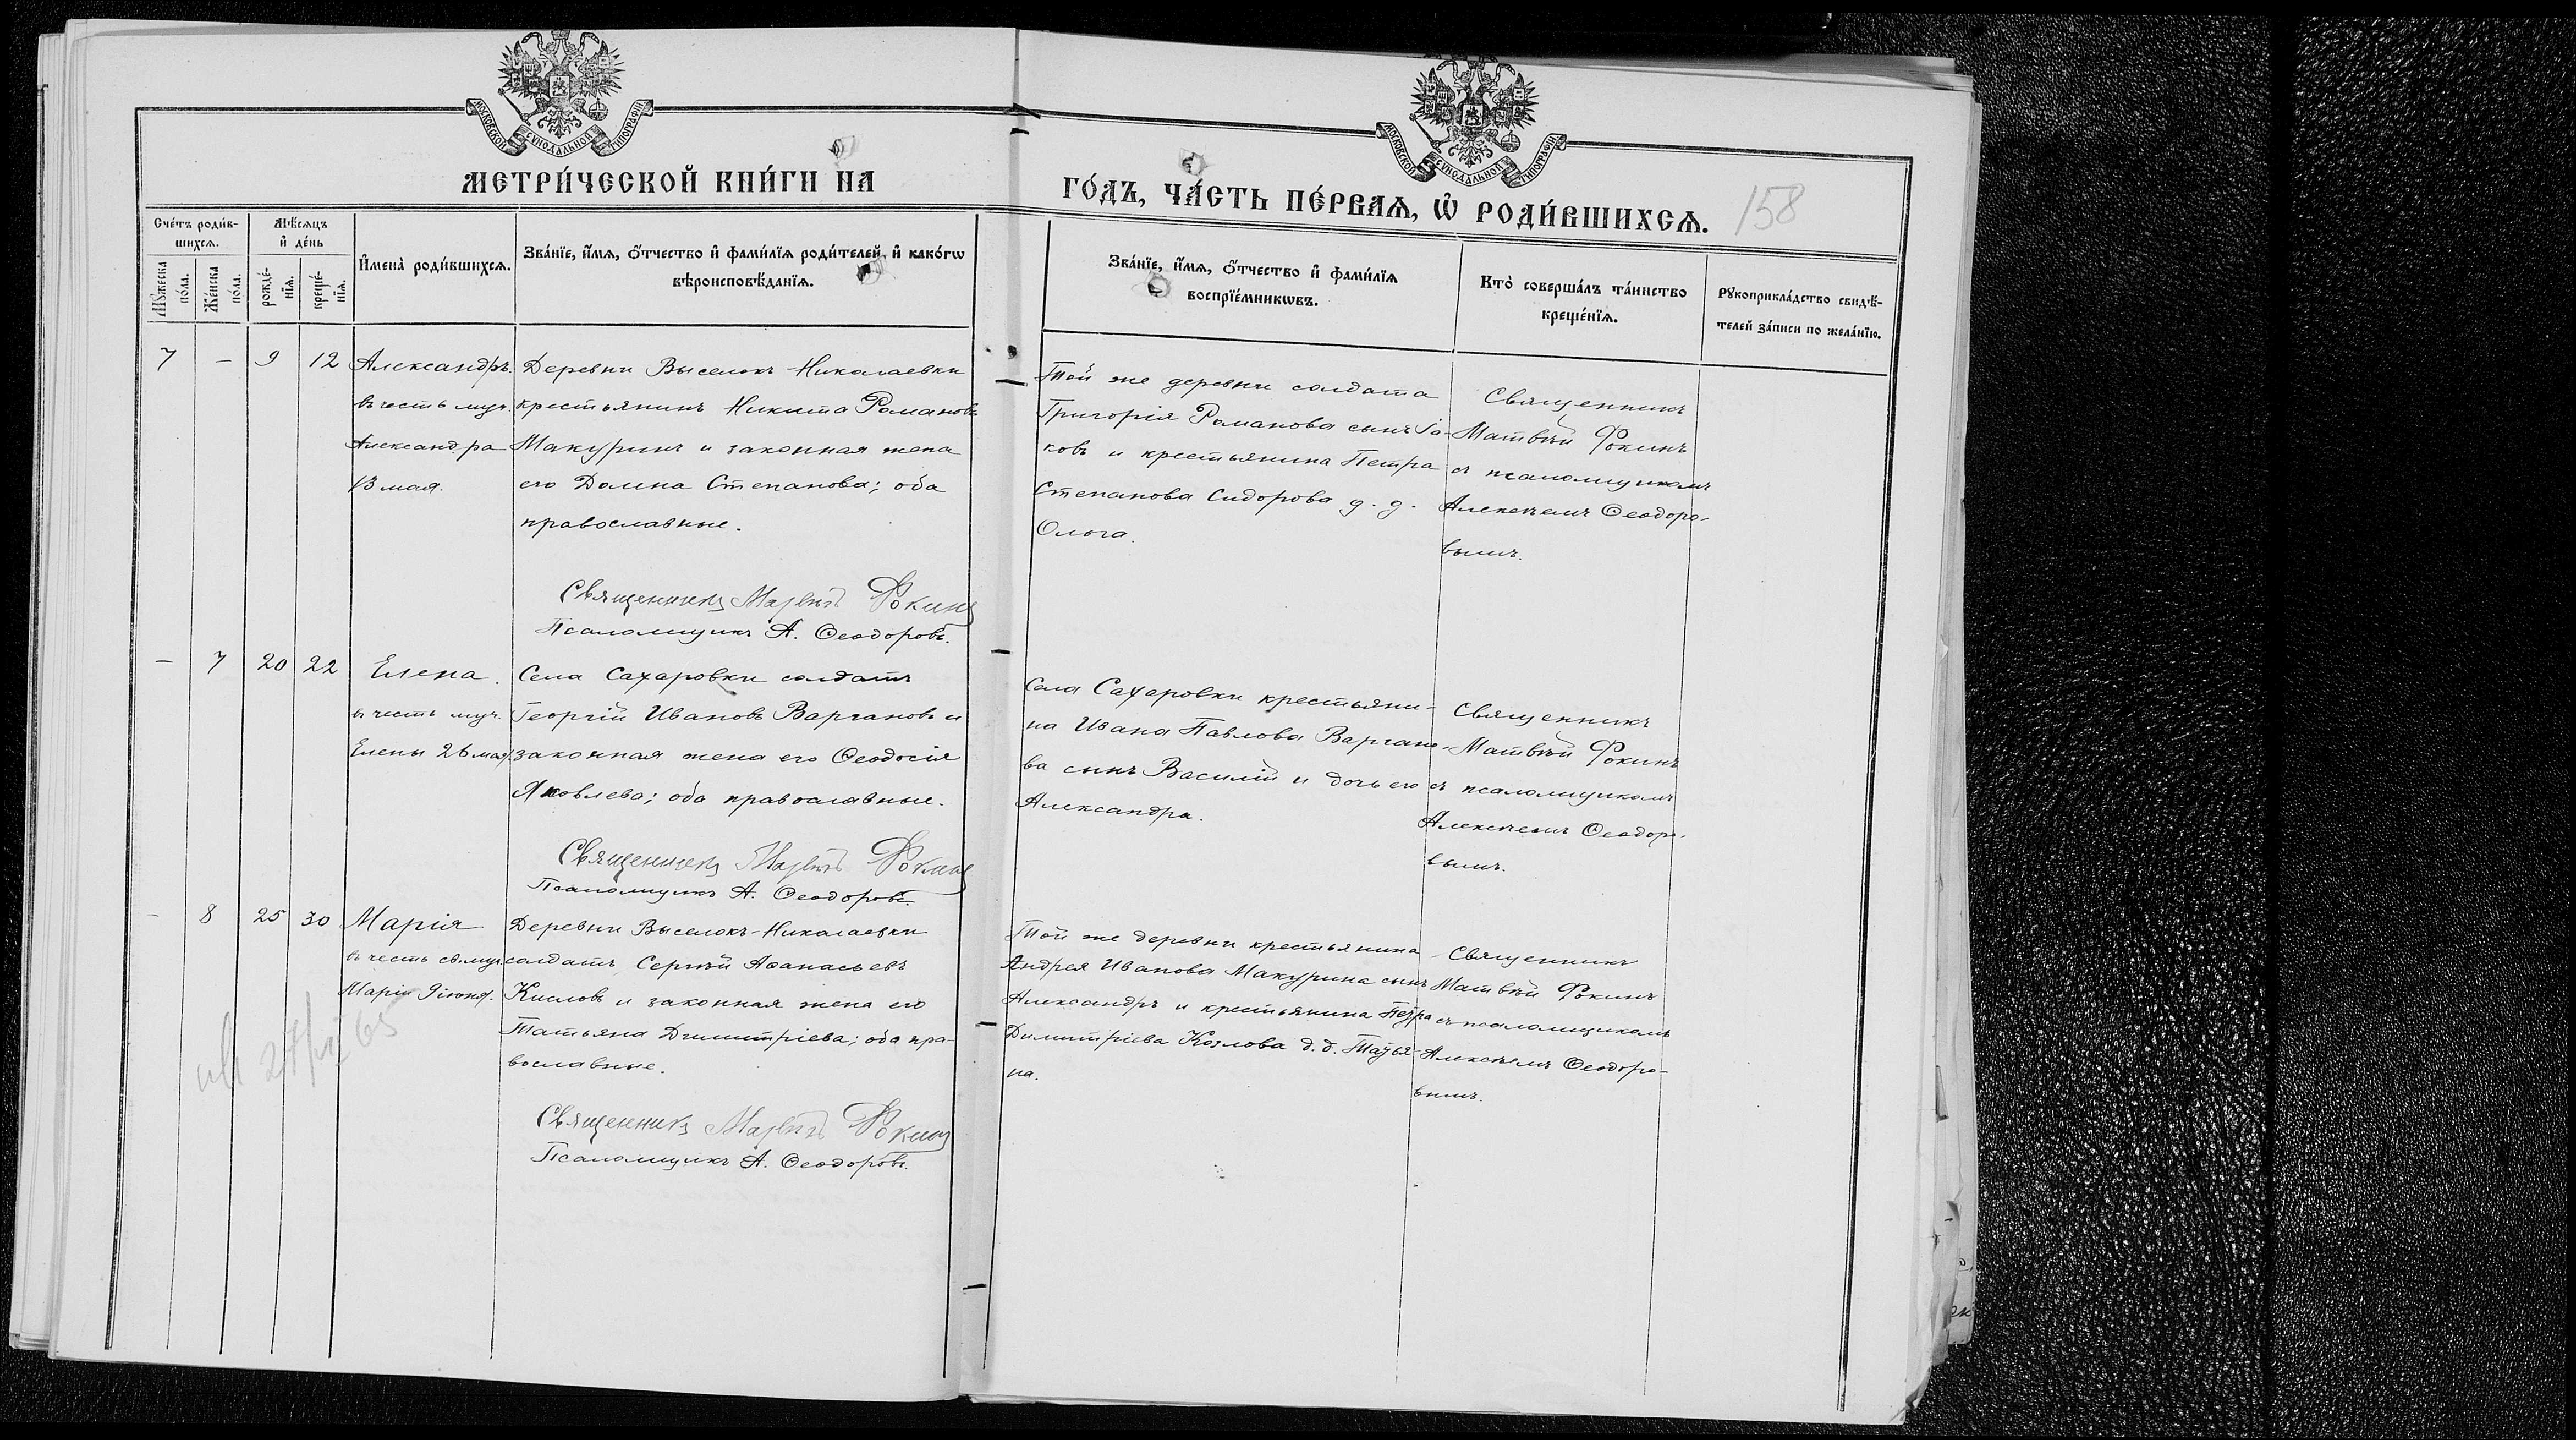 МОСКОВСКОЙ СУНОДАЛЬНОЙ ТИПОГРАФІИ
МОСКОВСКОЙ СУНОДАЛЬНОЙ ТИПОГРАФІИ
МЕТРИ́ЧЕСКОЙ КНИ́ГИ НА
ГО́ДЪ, ЧА́СТЬ ПЕ́РВАѦ, Ѡ҆ РОДИ́ВШИХСѦ.
158
Сче́тъ роди́в-
шихсѧ.
Мꙋ́жеска
по́ла.
Же́нска
по́ла.
Мѣ́сѧцъ
и҆ де́нь
рожде́-
нїѧ.
креще́-
нїѧ.
И҆мена̀ роди́вшихсѧ.
Зва́нїе, и҆́мѧ, ѻ҆́тчество и҆ фами́лїѧ роди́телей, и҆ како́гѡ
вѣроисповѣ́данїѧ.
Зва́нїе, и҆́мѧ, ѻ҆́тчество и҆ фами́лїѧ
воспрїе́мникѡвъ.
Кто̀ соверша́лъ та́инство
креще́нїѧ.
Рꙋкоприкла́дство свидѣ́-
телей за́писи по жела́нїю.
7
—
9
12
Александръ.
въ честь муч.
Александра
13 мая.
Деревни Выселокъ-Николаевки
крестьянинъ Никита Романовъ
Макуринъ и законная жена
его Домна Степанова; оба
православные.
Священникъ Матвѣй Фокинъ
Псаломщикъ А. Ѳеодоровъ.
Той же деревни солдата
Григорія Романова сынъ Іа-
ковъ и крестьянина Петра
Степанова Сидорова д. д.
Ольга.
Священникъ
Матвѣй Фокинъ
съ псаломщикомъ
Алексѣемъ Ѳеодоро-
вымъ.
—
7
20
22
Елена.
въ честь муч.
Елены 26 мая.
Села Сахаровки солдатъ
Георгій Ивановъ Варгановъ и
законная жена его Ѳеодосія
Яковлева; оба православные.
Священникъ Матвѣй Фокинъ
Псаломщикъ А. Ѳеодоровъ.
Села Сахаровки крестьяни-
на Ивана Павлова Варгано-
ва сынъ Василій и дочь его
Александра.
Священникъ
Матвѣй Фокинъ
съ псаломщикомъ
Алексѣемъ Ѳеодоро-
вымъ.
—
8
25
30
Марія
въ честь св. муч.
Маріи 9 іюня.
Деревни Выселокъ-Николаевки
солдатъ Сергѣй Аѳанасьевъ
Кислов и законная жена его
Татьяна Димитріева; оба пра-
вославные.
Священникъ Матвѣй Фокинъ
Псаломщикъ А. Ѳеодоровъ.
Той же деревни крестьянина
Андрея Иванова Макурина сынъ
Александръ и крестьянина Петра
Димитріева Козлова д. д. Татья-
на.
Священникъ
Матвѣй Фокинъ
съ псаломщикомъ
Алексѣемъ Ѳеодоро-
вымъ.